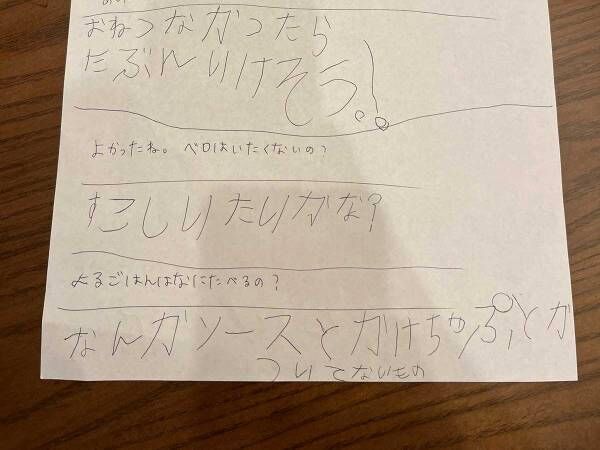 おねつなかったら
たぶんいけそう。!
よかったね。ベロはいたくないの?
すこしいたいかな?
よるごはんはなにたべるの?
なんかソースとかけちゃぷとか
ついてないもの